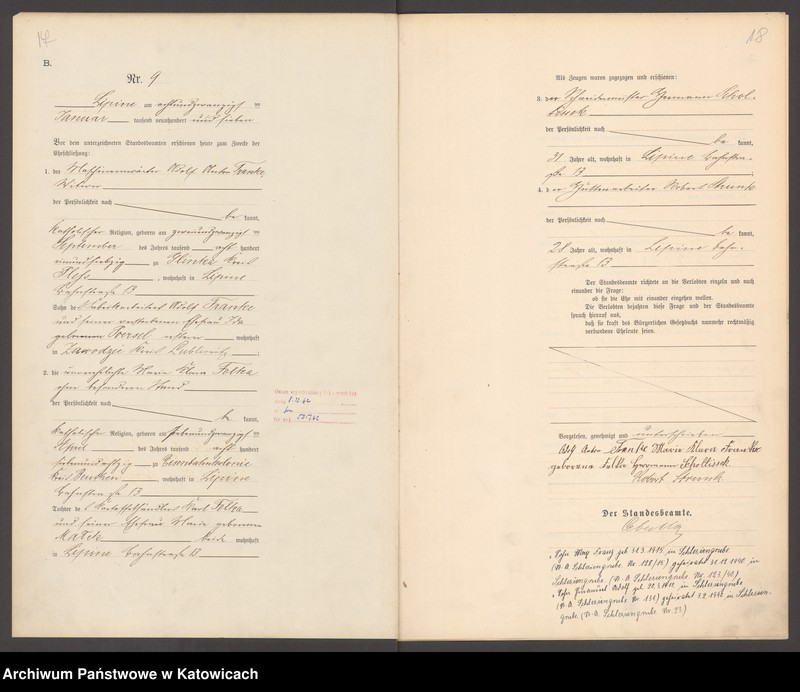 17
B.
Nr. 9
Lipine am achtundzwanzigsten
Januar tausend neunhundert und sieben
Vor dem unterzeichneten Standesbeamten erschienen heute zum Zwecke der
Eheschließung:
1. der Maschinenwärter Adolf Anton Franke,
Witwer
der Persönlichkeit nach
be kannt,
katholischer Religion, geboren am
September des Jahres tausend acht hundert
zu Glinka Kreis
Pleß, wohnhaft in Lipine
Bahnstraße 13
Sohn des Fabrikarbeiters Adolf Franke
und seiner verstorbenen Ehefrau Ida
geborenen wohnhaft
in Zawodzie Kreis Lublinitz;
2. die unverehelichte Maria Klara Folka
ohne besonderen Stand
der Persönlichkeit nach
be kannt,
katholischer Religion, geboren am siebenundzwanzigsten
April des Jahres tausend acht hundert
siebenundachtzig zu Eisenbahnkolonie
Kreis Beuthen, wohnhaft in Lipine
Bahnstraße 13
Tochter des Karl Folka
und seiner Ehefrau Marie geborenen
beide wohnhaft
in Lipine Bahnstraße 13
18
Als Zeugen waren zugezogen und erschienen:
3. der Hermann Schol-
tissek
der Persönlichkeit nach
be kannt,
31 Jahre alt, wohnhaft in Lipine Bahnstra-
ße 13;
4. der Hüttenarbeiter Robert Strunk
der Persönlichkeit nach
be kannt,
28 Jahre alt, wohnhaft in Lipine Bahn-
straße 13
Der Standesbeamte richtete an die Verlobten einzeln und nach
einander die Frage:
ob sie die Ehe mit einander eingehen wollen.
Die Verlobten bejahten diese Frage und der Standesbeamte
sprach hierauf aus,
daß sie kraft des Bürgerlichen Gesetzbuchs nunmehr rechtmäßig
verbundene Eheleute seien.
Vorgelesen, genehmigt und unterschrieben
Adolf Anton Franke Maria Klara Franke
geborene Folka Hermann Scholtissek
Robert Strunk
Der Standesbeamte.
1. Sohn Max Franz geb. 31.3.1915 in Schlesiengrube
(St. A. Schlesiengrube Nr. 128/15) geheiratet 31.12.1940 in
Schlesiengrube (St. A. Schlesiengrube Nr. 123/40)
2. Sohn Emanuel Adolf geb. in Schlesiengrube
(St. A. Schlesiengrube Nr. 131) geheiratet in Schlesien-
grube (St. A. Schlesiengrube Nr. 23)
Archiwum Państwowe w Katowicach